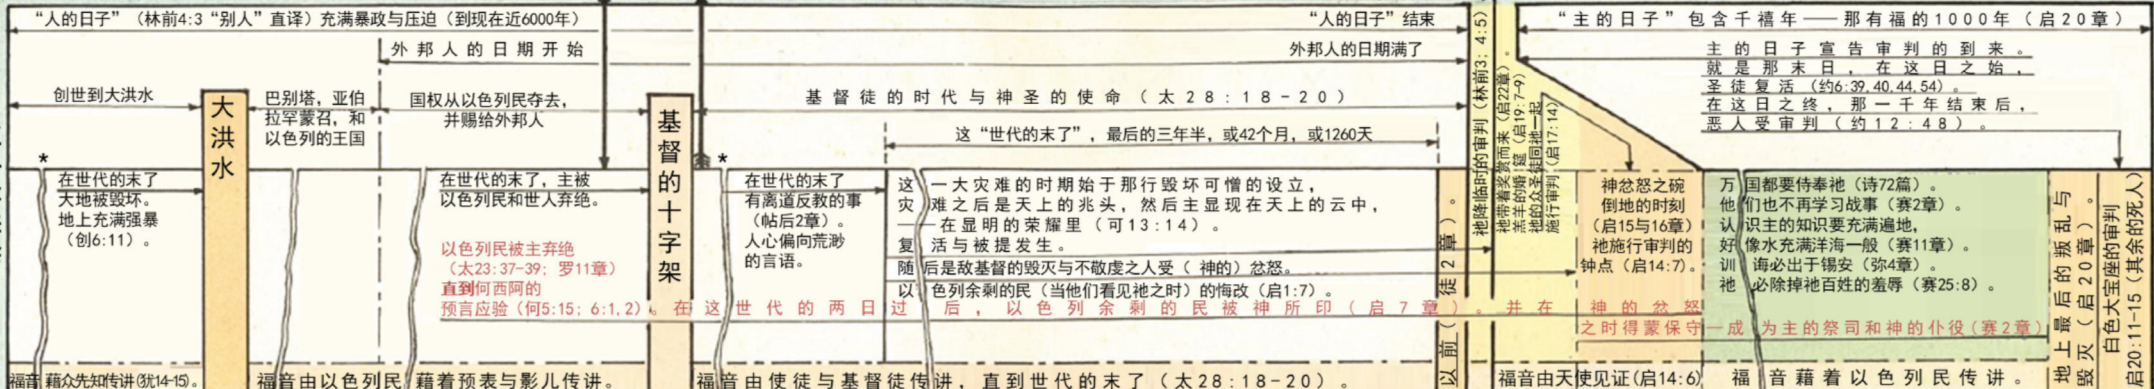 “人的日子”（林前4:3“别人”直译）充满暴政与压迫（到现在近6000年）
“人的日子”结束
“主的日子”包含千禧年——那有福的1000年（启20章）
外邦人的日期开始
外邦人的日期满了
主的日子宣告审判的到来。
就是那末日，在这日之始，
圣徒复活（约6:39,40,44,54）。
在这日之终，那一千年结束后，
恶人受审判（约12:48）。
创世到大洪水
大洪水
巴别塔，亚伯
拉罕蒙召，和
以色列的王国
国权从以色列民夺去，
并赐给外邦人
基督的十字架
基督徒的时代与神圣的使命（太28:18-20）
这“世代的末了”，最后的三年半，或42个月，或1260天
*
在世代的末了
大地被毁坏。
地上充满强暴
（创6:11）。
在世代的末了，主被
以色列民和世人弃绝。
以色列民被主弃绝
（太23:37-39; 罗11章）
直到何西阿的
预言应验（何5:15; 6:1,2）。在这世代的两日过后，以色列余剩的民被神所印（启7章）。并在神的忿怒
之时得蒙保守—成为主的祭司和神的仆役（赛2章）
*
在世代的末了
有离道反教的事
（帖后2章）。
人心偏向荒渺
的言语。
这一大灾难的时期始于那行毁坏可憎的设立，
灾难之后是天上的兆头，然后主显现在天上的云中，
——在显明的荣耀里（可13:14）。
复活与被提发生。
随后是敌基督的毁灭与不敬虔之人受（神的）忿怒。
以色列余剩的民（当他们看见祂之时）的悔改（启1:7）。
以前（徒2章）。
祂降临时的审判（林前3; 4:5）
祂带着奖赏而来（启22章）。
羔羊的婚筵（启19:7-9）
祂的众圣徒同祂一起
施行审判（启17:14）
神忿怒之碗
倒地的时刻
（启15与16章）
祂施行审判的
钟点（启14:7）。
万国都要侍奉祂（诗72篇）。
他们也不再学习战事（赛2章）。
认识主的知识要充满遍地，
好像水充满洋海一般（赛11章）。
训诲必出于锡安（弥4章）。
祂必除掉祂百姓的羞辱（赛25:8）。
地上最后的叛乱与
毁灭（启20章）。
白色大宝座的审判
启20:11-15（其余的死人）
福音藉众先知传讲（犹14-15）。
福音由以色列民藉着预表与影儿传讲。
福音由使徒与基督徒传讲，直到世代的末了（太28:18-20）。
福音由天使见证（启14:6）
福音藉着以色列民传讲。